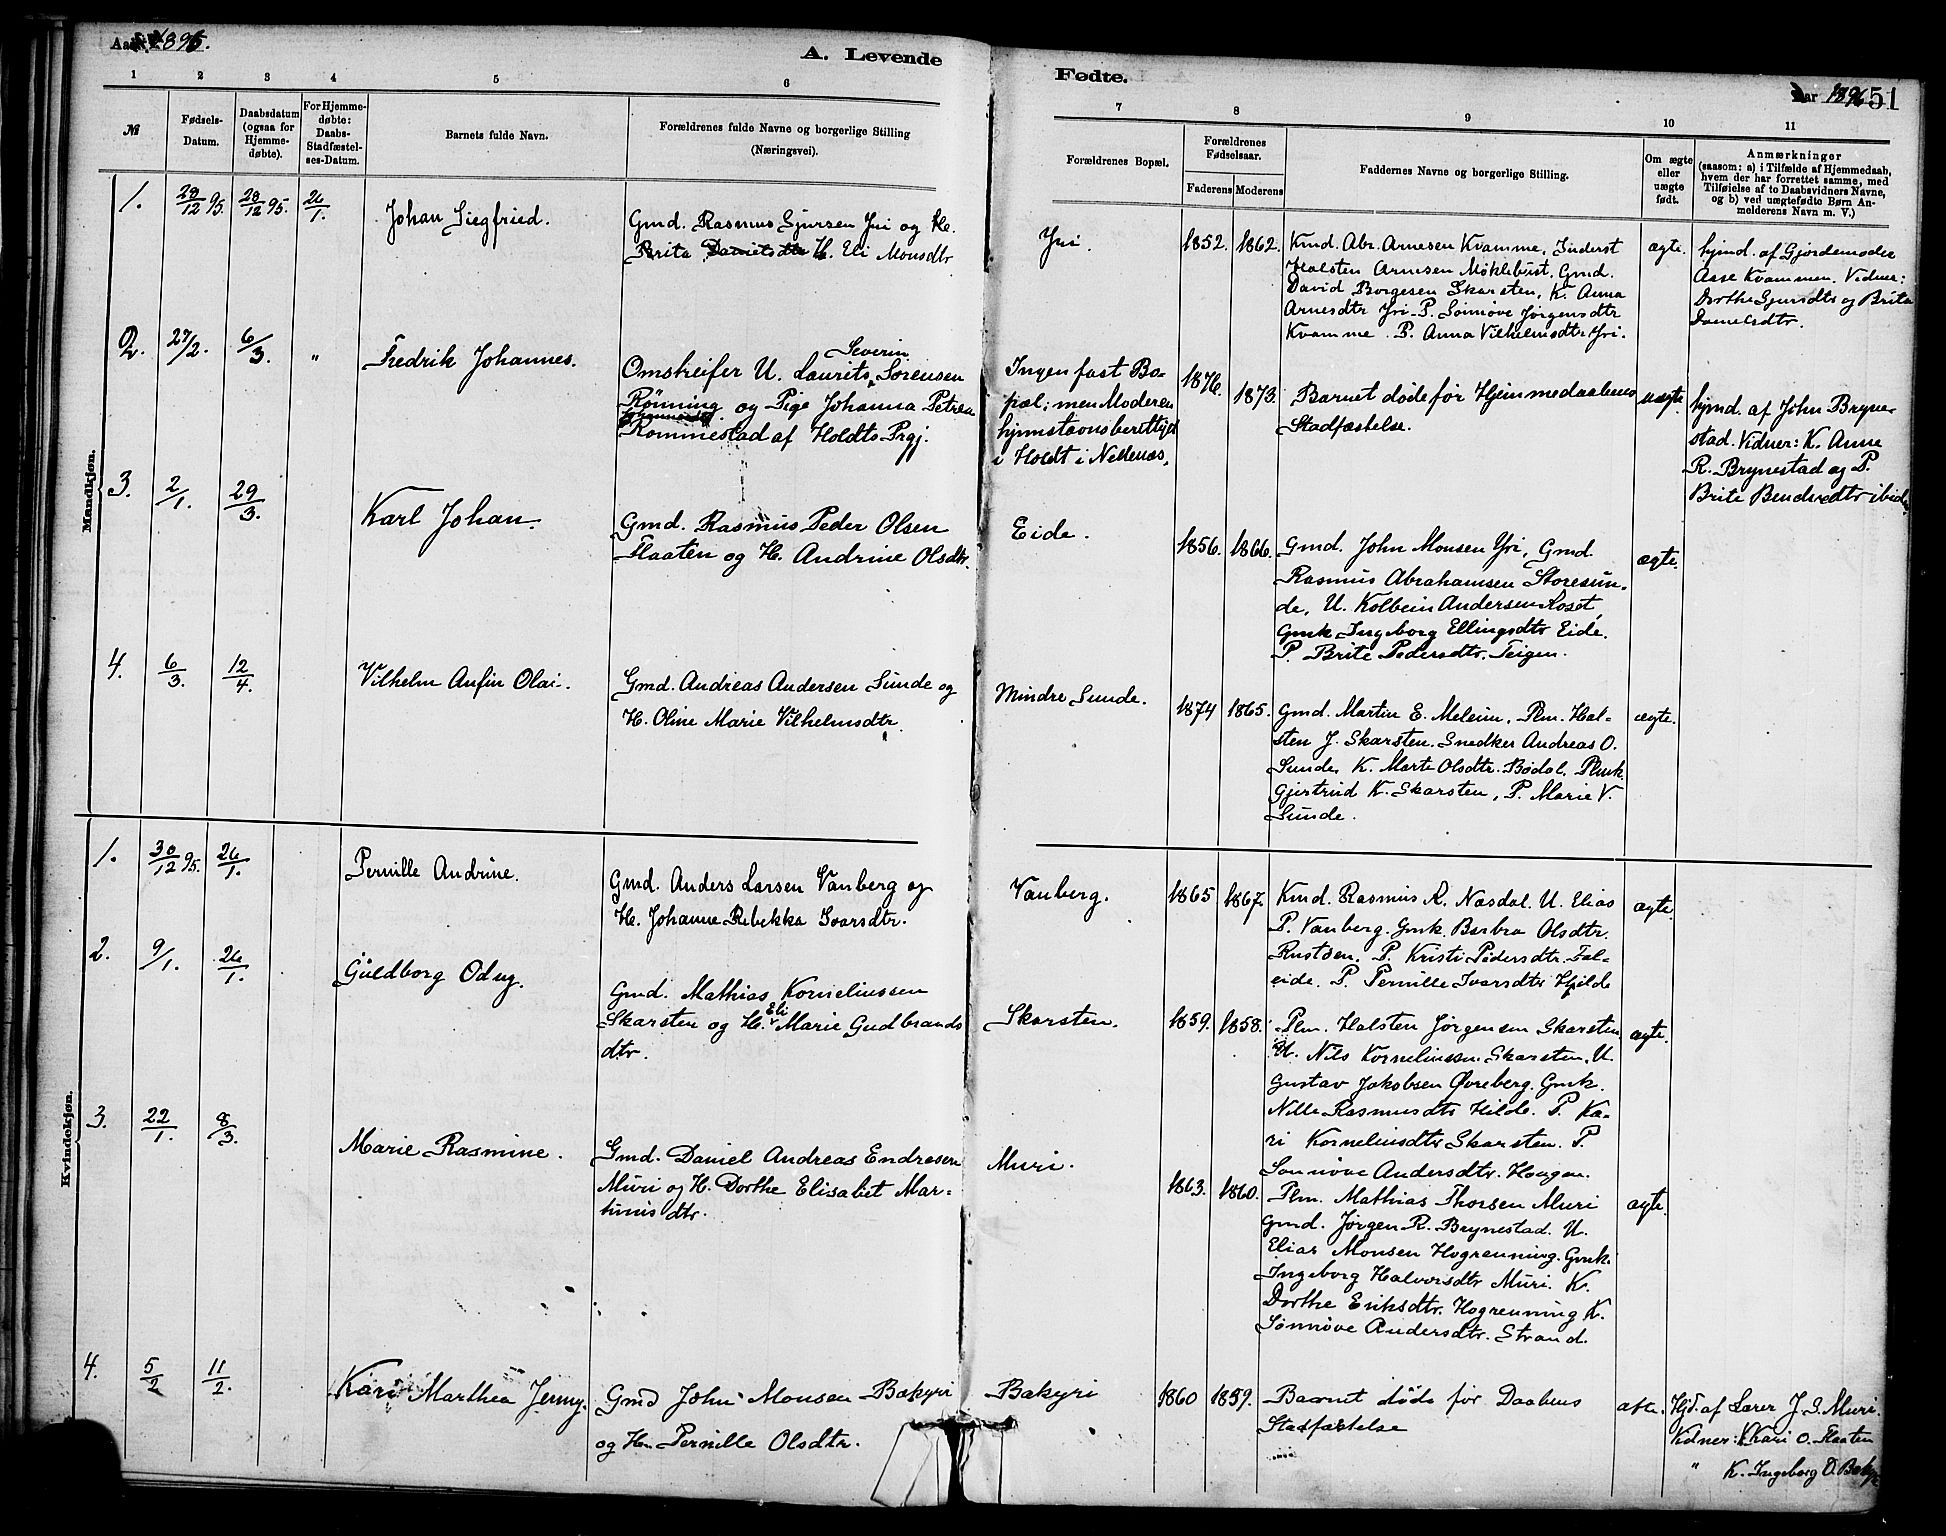 Aar 1896.
A. Levende
1 2 3 4 5 6
№
Fødsels-
Datum.
Daabsdatum
(ogsaa for
Hjemme-
døbte).
For Hjemme-
døbte:
Daabs-
Stadfæstel-
ses-Datum.
Barnets fulde Navn.
Forældrenes fulde Navne og borgerlige Stilling
(Næringsvei).
Mandkjøn.
1. 28/12 95. 28/12 95. 26/1.
Johan Siegfried.
Gmd. Rasmus Sjursen Yri og K.
Brita Danielsdtr H. Eli Monsdtr
2. 27/2. 6/3. "
Fredrik Johannes.
Severin
Omstreifer U. Laurits Sørensen
Rønning og Pige Johanna Petrea
Rommestad af Holdts Prgj.
3. 2/1. 29/3.
Karl Johan.
Gmd. Rasmus Peder Olsen
Flaaten og H. Andrine Olsdtr.
4. 6/3. 12/4.
Vilhelm Anfin Olai.
Gmd. Andreas Andersen Sunde og
H. Oline Marie Vilhelmsdtr.
Kvindekjøn.
1. 30/12 95. 26/1.
Pernille Andrine.
Gmd. Anders Larsen Vanberg og
H. Johanne Rebekka Ivarsdtr.
2. 9/1. 26/1.
Guldborg Odny.
Gmd. Mathias Korneliussen
Skarsten og H. Eli Marie Gudbrands
dtr.
3. 22/1. 8/3.
Marie Rasmine.
Gmd. Daniel Andreas Endresen
Muri og H. Dorthe Elisabet Mar-
tinusdtr.
4. 5/2 11/2.
Kari Marthea Jenny.
Gmd John Monsen Bakyri
og H. Pernille Olsdtr.
Fødte.
Aar 1896 51
7 8 9 10 11
Forældrenes Bopæl.
Forældrenes
Fødselsaar.
Faderens Moderens
Faddernes Navne og borgerlige Stilling.
Om ægte
eller
uægte
født.
Anmærkninger
(saasom: a) i Tilfælde af Hjemmedaab,
hvem der har forrettet samme, med
Tilføielse af to Daabsvidners Navne,
og b) ved uægtefødte Børn An-
melderens Navn m. V.)
Yri. 1852. 1862.
Kmd. Abr. Arnesen Kvamme, Inderst
Halsten Arnesen Møklebust, Gmd.
David Borgesen Skarsten, K. Anna
Arnesdtr Yri. P. Sønnøve Jørgensdtr
Kvamme. P. Anna Vilhelmsdtr Yri.
ægte.
hjmd. af Gjordemoder
Aase Kvammen. Vidner:
Dorthe Sjursdtr og Brita
Danielsdtr.
Ingen fast Bo-
pæl; men Moderen
hjemstavnsberettiget
i Holdt i Nedenæs.
1876. 1873.
Barnet døde før Hjemmedaabens
Stadfæstelse.
uægte.
hjmd. af John Bryne-
stad. Vidner: K. Anne
R. Brynestad og P.
Brite Bendixdtr ibid.
Eide. 1856. 1866.
Gmd. John Monsen Yri, Gmd.
Rasmus Abrahamsen Storesun-
de, U. Kolbein Andersen Roset,
Gmk Ingeborg Ellingsdtr Eide.
P. Brite Pedersdtr. Teigen.
ægte.
Mindre Sunde. 1874 1865.
Gmd. Martin E. Meleim, Plm. Hal-
sten J. Skarsten. Snedker Andreas O.
Sunde. K. Marte Olsdtr. Bødal. Plmk.
Gjertrud K. Skarsten, P. Marie V.
Sunde.
ægte.
Vanberg. 1865 1867.
Kmd. Rasmus R. Nesdal. U. Elias
P. Vanberg. Gmk. Barbra Olsdtr.
Rustøen. P. Kristi Pedersdtr. Fal-
eide. P. Pernille Ivarsdtr Hjelde
ægte
Skarsten. 1859. 1858.
Plm. Halsten Jørgensen Skarsten.
U. Nils Korneliussen Skarsten. U.
Gustav Jakobsen Øvreberg. Gmk.
Nille Rasmusdtr Hilde. P. Ka-
ri Korneliusdtr Skarsten. P.
Sønnøve Andersdtr. Haugen.
ægte.
Muri. 1863. 1860.
Plm. Mathias Thorsen Muri
Gmd. Jørgen R. Brynestad. U.
Elias Monsen Hogrenning. Gmk.
Ingeborg Halvorsdtr Muri. K.
Dorthe Eriksdtr. Hogrenning K.
Sønnøve Andersdtr. Strand.
ægte.
Bakyri 1860 1859.
Barnet døde før Daabens
Stadfæstelse
Hjd. af Lærer J. S. Muri.
Vidner: K. Kari O. Flaaten
" K. Ingeborg O. Bakyri